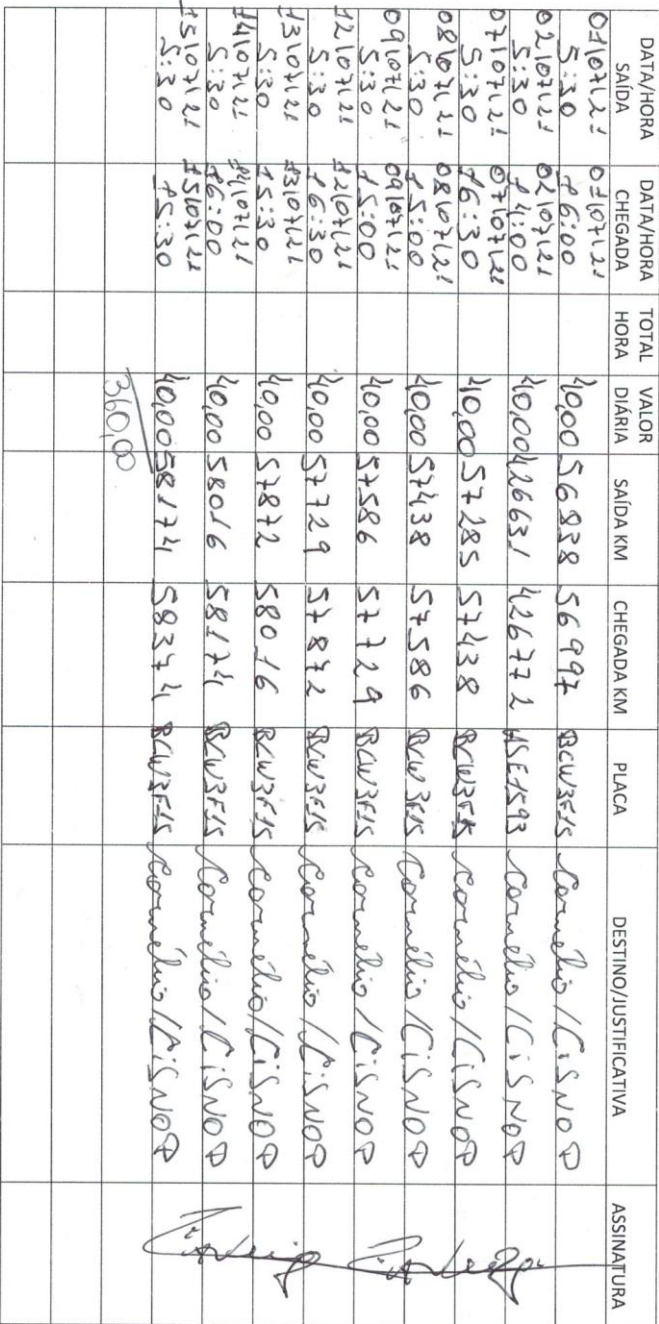 DATA/HORA SAÍDA DATA/HORA CHEGADA TOTAL HORA VALOR DIÁRIA SAÍDA KM CHEGADA KM PLACA DESTINO/JUSTIFICATIVA ASSINATURA
01/07/21 5:30 01/07/21 16:00 40,00 56838 56997 BCW3F15 Cornélio/CiSNOP
02/07/21 5:30 02/07/21 14:00 40,00 426631 426772 ASE1593 Cornélio/CiSNOP
07/07/21 5:30 07/07/21 16:30 40,00 57285 57438 BCW3F15 Cornélio/CiSNOP
08/07/21 5:30 08/07/21 15:00 40,00 57438 57586 BCW3F15 Cornélio/CiSNOP
09/07/21 5:30 09/07/21 15:00 40,00 57586 57729 BCW3F15 Cornélio/CiSNOP
12/07/21 5:30 12/07/21 16:30 40,00 57729 57872 BCW3F15 Cornélio/CiSNOP
13/07/21 5:30 13/07/21 15:30 40,00 57872 58016 BCW3F15 Cornélio/CiSNOP
14/07/21 5:30 14/07/21 16:00 40,00 58016 58174 BCW3F15 Cornélio/CiSNOP
15/07/21 5:30 15/07/21 15:30 40,00 58174 58374 BCW3F15 Cornélio/CiSNOP
360,00